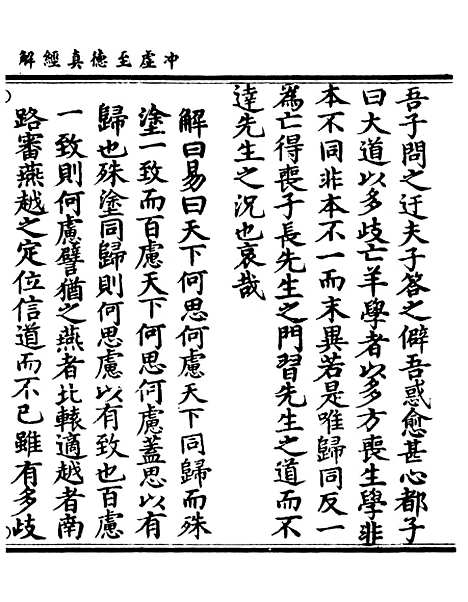 冲虛至德真經解
吾子問之迂夫子答之僻吾惑愈甚心都子
曰大道以多歧亡羊學者以多方喪生學非
本不同非本不一而末異若是唯歸同反一
為亡得喪子長先生之門習先生之道而不
達先生之況也哀哉
解曰易曰天下何思何慮天下同歸而殊
塗一致而百慮天下何思何慮蓋思以有
歸也殊塗同歸則何思慮以有致也百慮
一致則何慮譬猶之燕者北轅適越者南
路審燕越之定位信道而不已雖有多歧